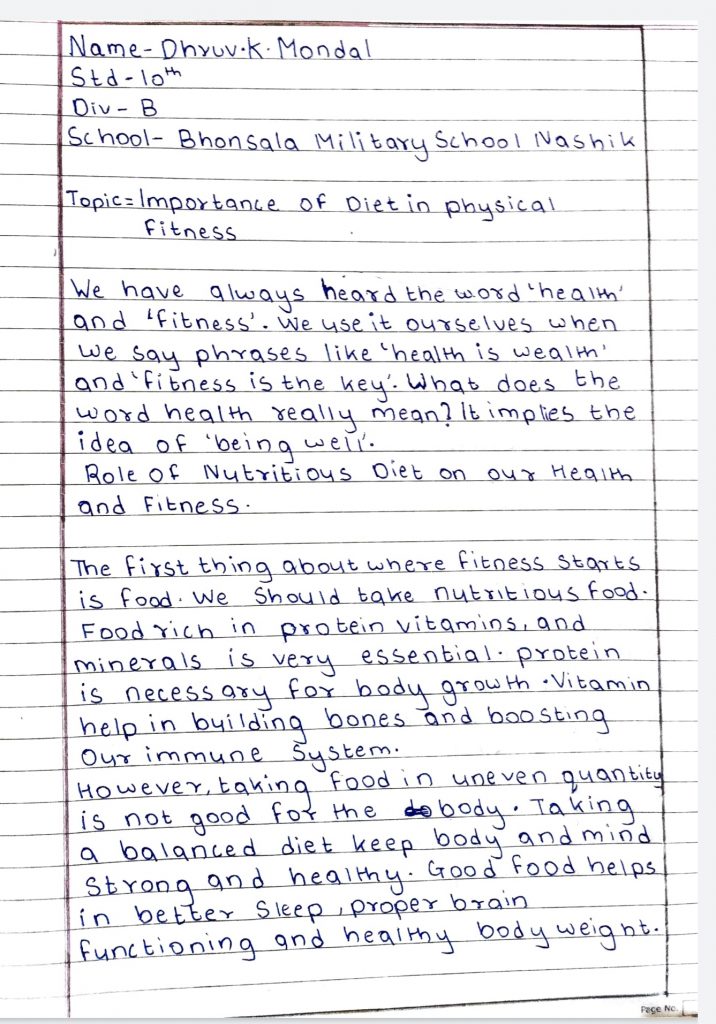 Name- Dhruv.K. Mondal
Std-10th
Div- B
School- Bhonsala Military School Nashik
Topic= Importance of Diet in physical
fitness
We have always heard the word 'health'
and 'fitness'. We use it ourselves when
we say phrases like 'health is wealth'
and 'fitness is the key'. What does the
word health really mean? It implies the
idea of 'being well'.
Role of Nutritious Diet on our Health
and Fitness.
The first thing about where fitness starts
is food. We should take nutritious food.
Food rich in protein vitamins, and
minerals is very essential. protein
is necessary for body growth. Vitamin
help in building bones and boosting
our immune system.
However, taking food in uneven quantity
is not good for the body. Taking
a balanced diet keep body and mind
strong and healthy. Good food helps
in better sleep, proper brain
functioning and healthy body weight.
Page No.